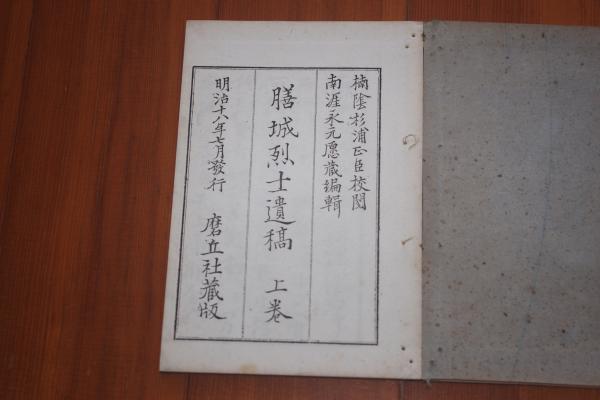 楠陰杉浦正臣校閲
南涯永元愿蔵編輯
膳城烈士遺稿 上巻
明治十八年七月發行 磨㐀社藏版